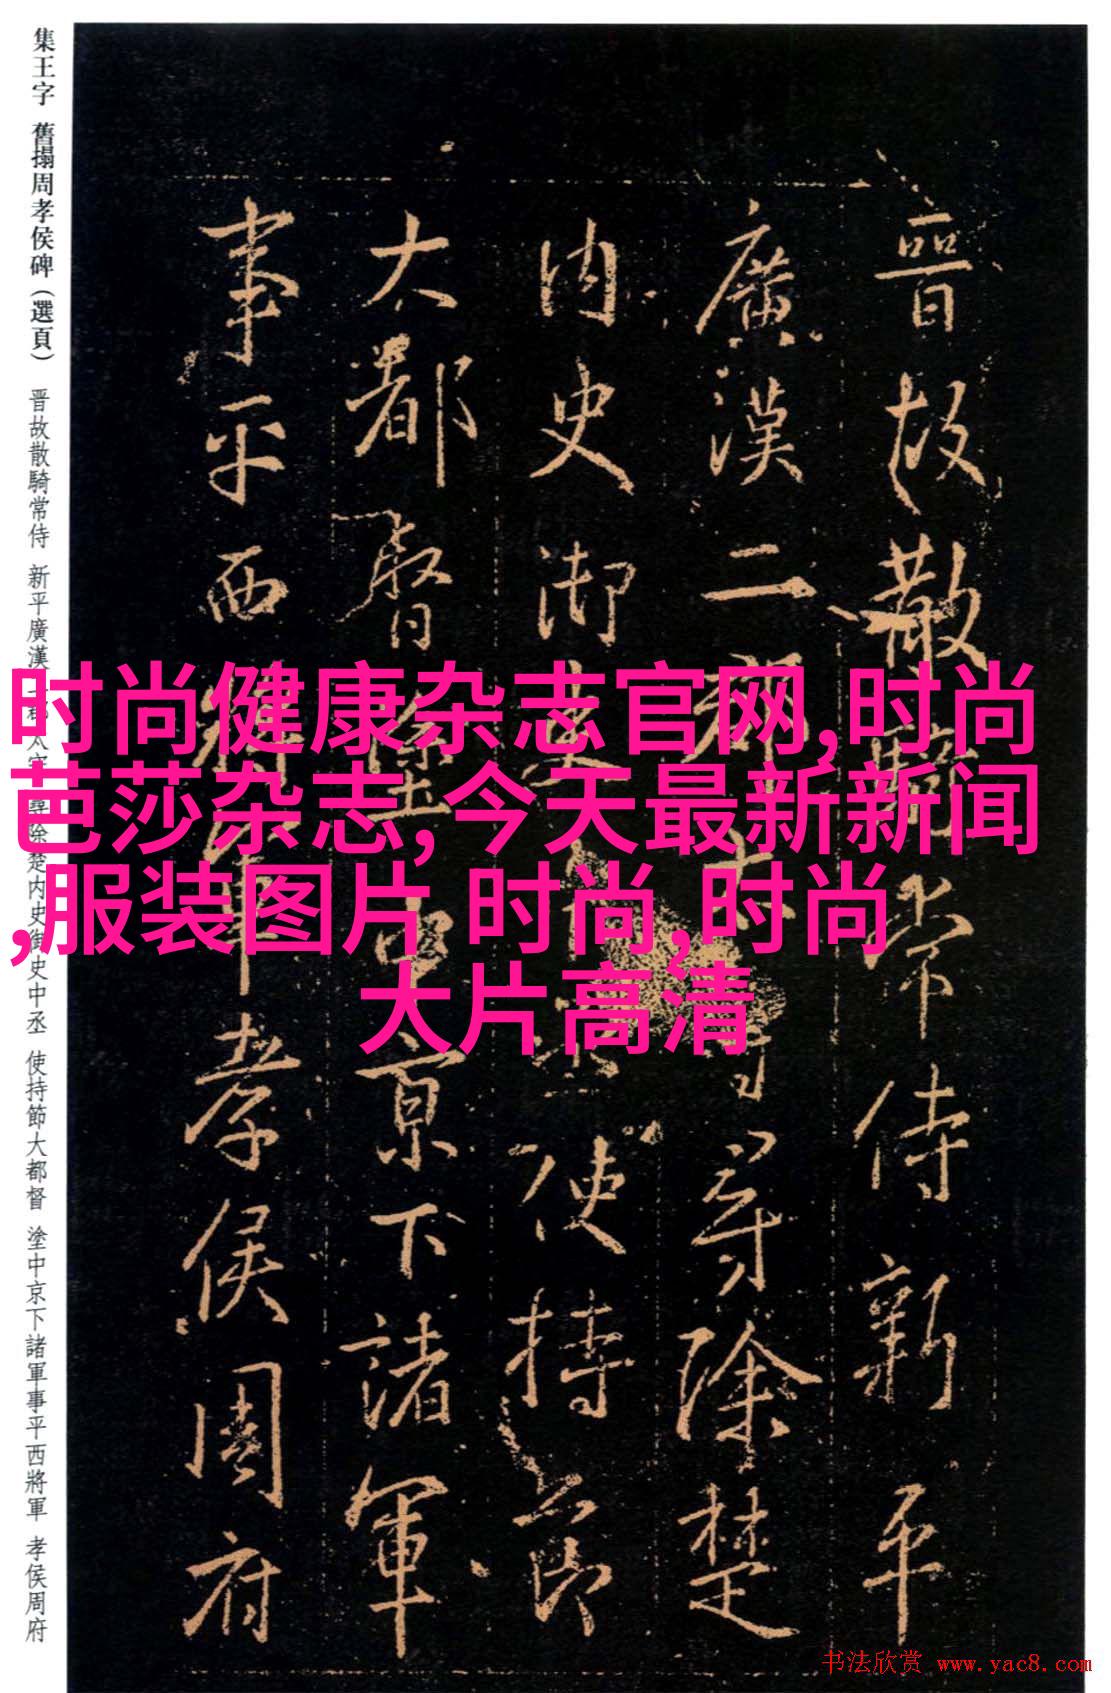 集王字 舊搨周孝侯碑（選頁） 晋故散騎常侍 新平廣漢二郡太守尋除楚内史御史中丞 使持節大都督 塗中京下諸軍事平西將軍 孝侯周府
晉故散騎常侍新平
廣漢二郡太守尋除楚
内史御史中丞使持節
大都督塗中京下諸軍
事平西將軍孝侯周府
时尚健康杂志官网,时尚
芭莎杂志,今天最新新闻
,服装图片 时尚,时尚
大片高清
书法欣赏 www.yac8.com